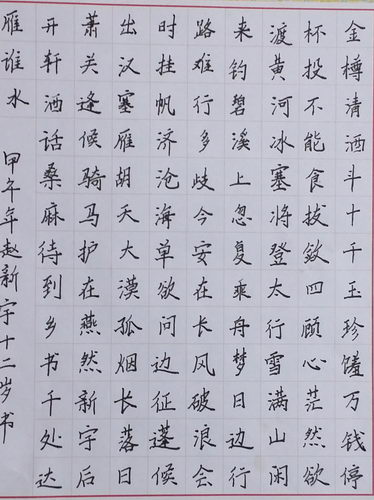 金樽清酒斗十千玉珍馐万钱停
杯投不能食拔敛四顾心茫然欲
渡黄河冰塞将登太行雪满山闲
来钓碧溪上忽复乘舟梦日边行
路难行多歧今安在长风破浪会
时挂帆济沧海单欲问边征蓬候
出汉塞雁胡天大漠孤烟长落日
萧关逢候骑马护在燕然新宇后
开轩酒话桑麻待到乡书千处达
雁谁水 甲午年赵新宇十二岁书